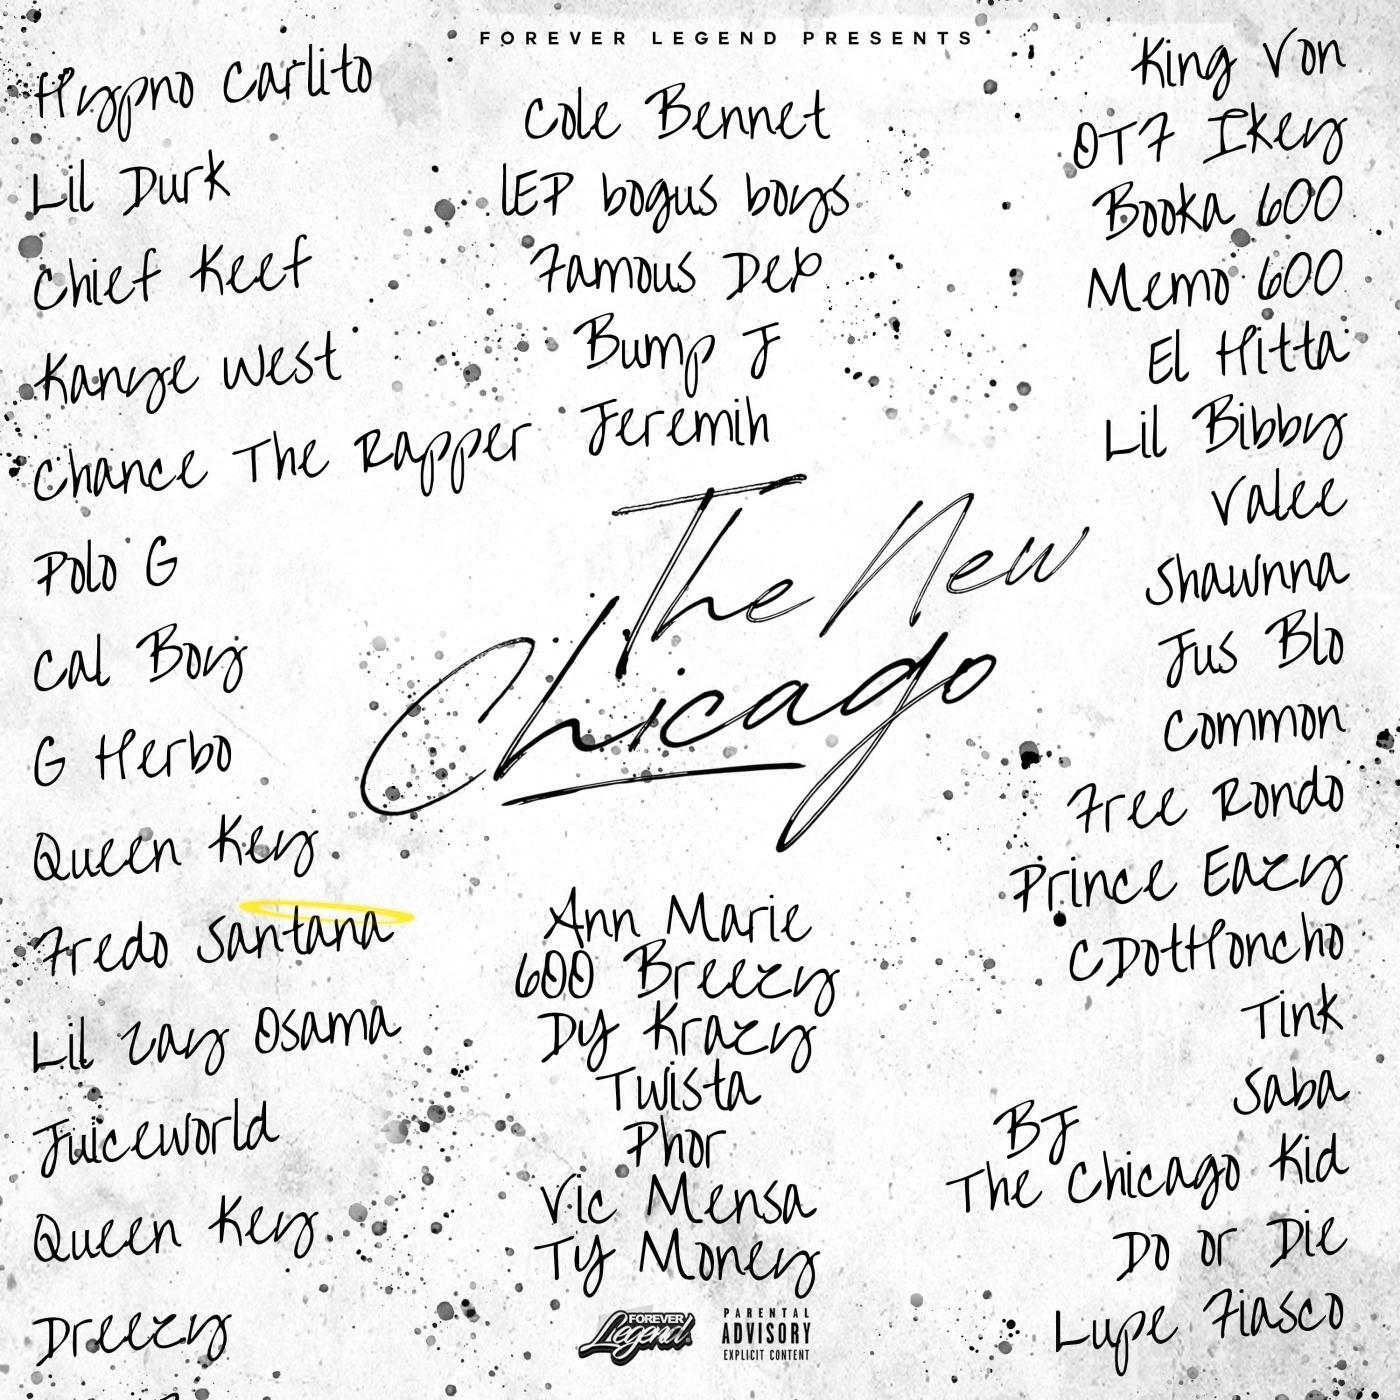 FOREVER LEGEND PRESENTS
Hypno Carlito
Lil Durk
Chief Keef
Kanye West
Chance The Rapper
Polo G
Cal Boy
G Herbo
Queen Key
Fredo Santana
Lil Zay Osama
Juiceworld
Queen Key
Dreezy
Cole Bennet
lEP bogus boys
Famous Dex
Bump J
Jeremih
The New
Chicago
Ann Marie
600 Breezy
DY Krazy
Twista
Phor
Vic Mensa
TY Money
FOREVER
Legend
PARENTAL
ADVISORY
EXPLICIT CONTENT
King Von
OT7 Ikey
Booka 600
Memo 600
El Hitta
Lil Bibby
Valee
Shawnna
Jus Blo
Common
Free Rondo
Prince Eazy
CDotHoncho
Tink
Saba
BJ
The Chicago Kid
Do or Die
Lupe Fiasco